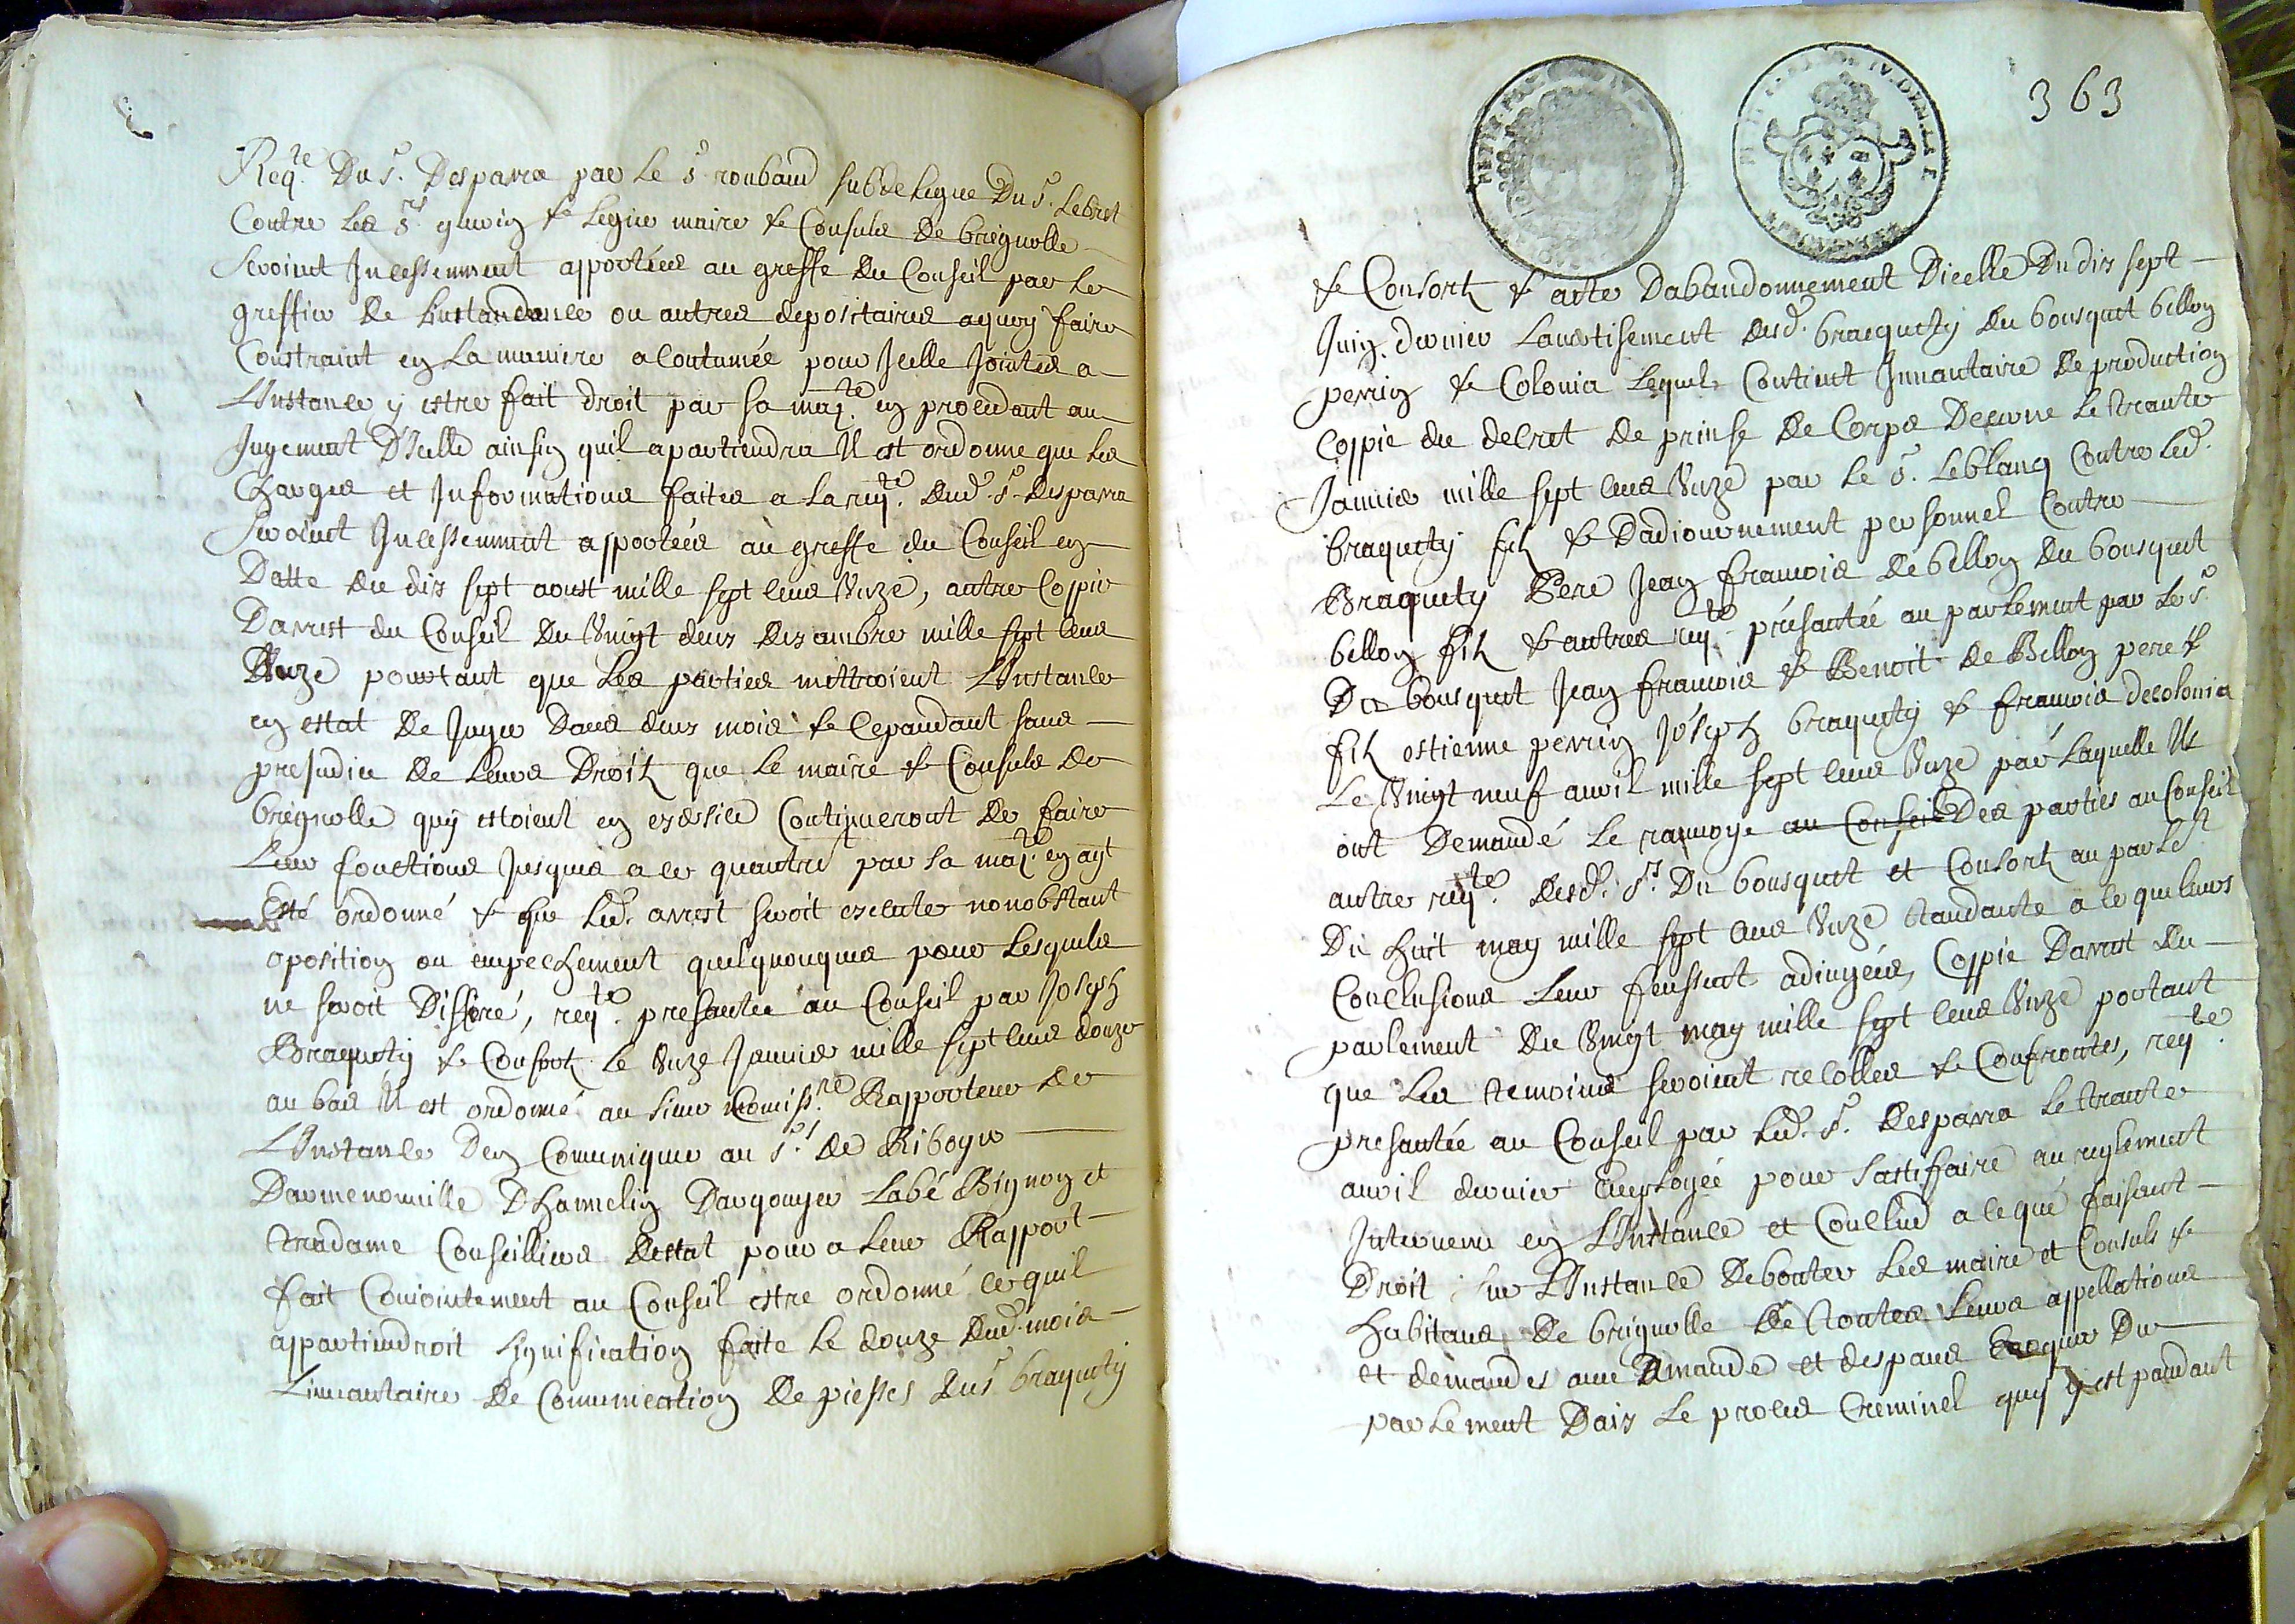 Req.te Du s.r Desparra par Le s.r roubaud subdelegue Du s.r Lebret
Contre Les s.rs guerin & Legier maire & Consuls De brignolle
seroint Incessemment apportées au greffe du Conseil par Le
greffier De Lintandance ou autres depositaires aquoy faire
Constraint en La maniere acoutumée pour Icelle Jointes a
L'Instance y estre fait droit par sa maj.té en procedant au
Jugement D'Icelle ainsin quil apartiendra Il est ordonne que Les
Charges et Informations faites a La req.te dud. s.r desparra
seroint Incessemment apportées au greffe du Conseil en
Datte du dix sept aoust mille sept cens Unze, autre Coppie
Darrest du Conseil Du Vingt deux dexambre mille sept cens
Unze pourtant que Les parties mettroient L'Instance
en estat De Juger Dans deux mois & Cepandant sans
prejudice De Leurs Droits que Le maire & Consuls De
brignolle quy estoient en exersice Continueront De faire
Leur fonctions Jusques a ce quautre par sa maj.té en ayt
Esté ordonné & que Led. arrest seroit executer nonobstant
oposition ou empechement quelquonques pour Lesquels
ne seroit Differé, req.te presantée au Conseil par Joseph
Braquety & Consorts Le Unze Janvier mille sept cens douze
au bas Il est ordonné au sieur Comiss.re Rapporteur de
L'Instance Den Comuniquer au s.r de Ribeyre
Darmenonville D'hamelin Dargouger Labé Bignon et
Madame Conseilliers Destat pour a Leur Rapport
fait Conjointement au Conseil estre ordonné ce quil
appartiendroit signification faite Le douze dud. mois
Linvantaire De Comunication De piesses du s.r braquety
363
& Consorts & acte Dabandonnement Dicelle Du dix sept
Juin dernier Lavertisement desd. braquety du bousquet bellon
perrin & Colonia Lequel Contient Invantaire De production
Coppie du decret De prinse De Corps Decerne Le trante
Janvier mille sept cens Unze par Le s.r Leblanq Contre Led.
braquety fils & Dadiournement personnel Contre
Braquety Pere Jean francois De bellon Du bousquet
bellon fils & autres req.te présantée au parlement par Le s.r
Du bousquet Jean francois & Benoit De Bellon pere &
fils estienne perrin Joseph braquety & francois decolonia
Le Vingt neuf avril mille sept cens Unze par Laquelle Ils
ont Demandé Le ranvoye au Conseil Des parties au Conseil
autre req.te desd. s.rs Du bousquet et Consorts au parle.t
Du huit may mille sept cens Unze tandante a ce que leurs
Conclusions Leur feussent adiugées, Coppie Darrest du
parlement du Vingt may mille sept cens Unze portant
que Les temoins seroient recollés & Confrontes, req.te
presantée au Conseil par Led. s.r Desparra Le trante
avril dernier Employée pour sastifaire au reglement
Intervenu en L'Instance et Conclud a ce que faisant
Droit sur L'Instance Debouter Les maire et Consuls &
habitans De brignolle De toutes Leurs appellations
et demandes avec Amande et despans Evoquer Du
parlement Daix Le proces Creminel quy y est pandant